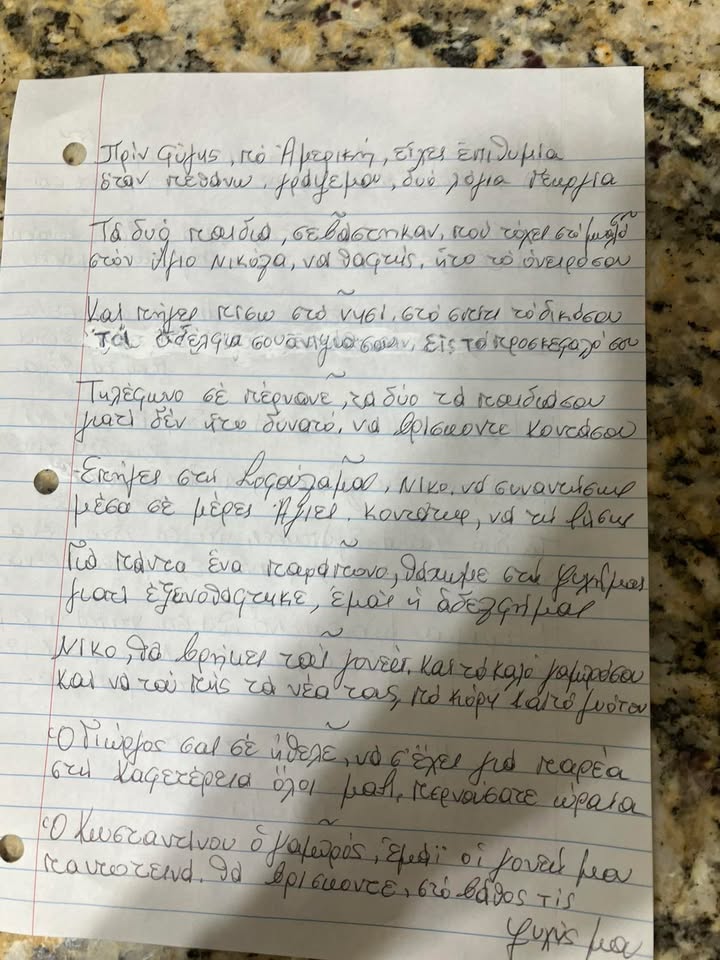 Πρίν Φύγης, πό Ἀμερική, εἶχες ἐπιθυμία
ὅταν πεθάνω, γράψεμου, δυό λόγια Γεωργία
Τά δυό παιδιά, σεβάστηκαν, πού τὄχες στό μυαλό
στόν Ἁγιο Νικόλα, να θαφτῆς, ἦτο τό ὀνειρόσου
Καί πῆγες πίσω στό νησί, στό σπίτι τό δικόσου
Τά ἀδέλφια σου εἰς τό προσκεφαλό σου
Τηλέφωνο σέ πέρνανε, τά δύο τά παιδιάσου
γιατί δέν ἦτο δυνατό, νά βρίσκοντε κοντάσου
Επῆγες στή Νικο, νά συναντήσης
μέσα σέ μέρες Ἁγιες, κοντεύης, νά τή
Γιά πάντα ἕνα παράπονο, θάχωμε στή ψυχήμας
γιατί ἐξενοθάφτηκε, ἐμᾶς ἡ ἀδελφήμας
Νικο, θά βρῆκες τούς γονεῖς, και τό καλό γαμπρόσου
και νά τού πῆς τά νέα τας, πό κόρη και τό γυιότου
Ὁ Γιῶργος σας σέ ἤθελε, νά σ' ἔχει γιά παρέα
στή καφετέρεια ὅλοι μαζί, περνούσατε ὡραία
Ὁ Κωσταντίνου ὁ γαμπρός, ἐμᾶς οἱ γονεῖς μου
παντοτεινά, θά βρισκοντε, στό βάθος τίς
ψυχῆς μου